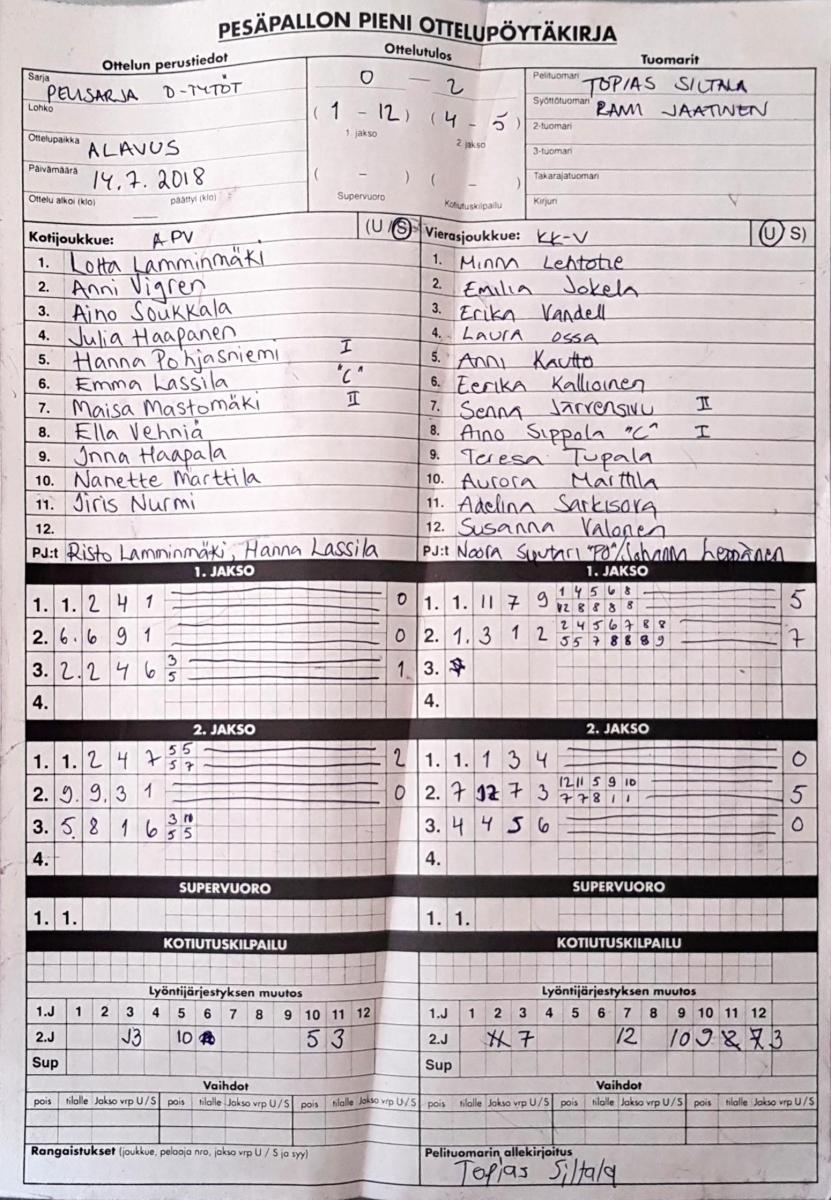 PESÄPALLON PIENI OTTELUPÖYTÄKIRJA
Ottelun perustiedot
Ottelutulos
Tuomarit
Sarja PELISARJA D-TYTÖT
Lohko
Ottelupaikka ALAVUS
Päivämäärä 14.7.2018
Ottelu alkoi (klo) päättyi (klo)
0 - 2
(1 - 12) (4 - 5)
1. jakso 2. jakso
( - ) ( - )
Supervuoro Kotiutuskilpailu
Pelituomari TOPIAS SILTALA
Syöttötuomari RAMI JAATINEN
2-tuomari
3-tuomari
Takarajatuomari
Kirjuri
Kotijoukkue: APV (U/S)
1. Lotta Lamminmäki
2. Anni Vigren
3. Aino Soukkala
4. Julia Haapanen
5. Hanna Pohjasniemi I
6. Emma Lassila "C"
7. Maisa Mastomäki II
8. Ella Vehniä
9. Inna Haapala
10. Nanette Marttila
11. Iiris Nurmi
12.
PJ:t Risto Lamminmäki, Hanna Lassila
Vierasjoukkue: KK-V (U/S)
1. Minna Lehtotie
2. Emilia Jokela
3. Erika Vandell
4. Laura Ossa
5. Anni Kautto
6. Eerika Kallioinen
7. Senna Järvensivu II
8. Aino Sippola "C" I
9. Teresa Tupala
10. Aurora Marttila
11. Adelina Sarkisova
12. Susanna Valonen
PJ:t Noora "PO"/Johanna Leppänen
1. JAKSO
1. 1. 2 4 1 0
2. 6. 6 9 1 0
3. 2. 2 4 6 3 1
5
4.
1. JAKSO
1. 1. 11 7 9 1 4 5 6 8 5
12 8 8 8 8
2. 1. 3 1 2 2 4 5 6 7 8 8 7
5 5 7 8 8 8 9
3.
4.
2. JAKSO
1. 1. 2 4 7 5 5 2
5 7
2. 9. 9. 3 1 0
3. 5. 8 1 6 3 10
5 5
4.
2. JAKSO
1. 1. 1 3 4 0
2. 7 12 7 3 12 11 5 9 10 5
7 7 8 1 1
3. 4 4 5 6 0
4.
SUPERVUORO
1. 1.
SUPERVUORO
1. 1.
KOTIUTUSKILPAILU
KOTIUTUSKILPAILU
Lyöntijärjestyksen muutos
1.J 1 2 3 4 5 6 7 8 9 10 11 12
2.J 10 5 3
Sup
Lyöntijärjestyksen muutos
1.J 1 2 3 4 5 6 7 8 9 10 11 12
2.J 7 12 10 9 8 7 3
Sup
Vaihdot
pois tilalle Jakso vrp U/S pois tilalle Jakso vrp U/S pois tilalle Jakso vrp U/S
Vaihdot
pois tilalle Jakso vrp U/S pois tilalle Jakso vrp U/S pois tilalle Jakso vrp U/S
Rangaistukset (joukkue, pelaaja nro, jakso vrp U / S ja syy)
Pelituomarin allekirjoitus
Topias Siltala